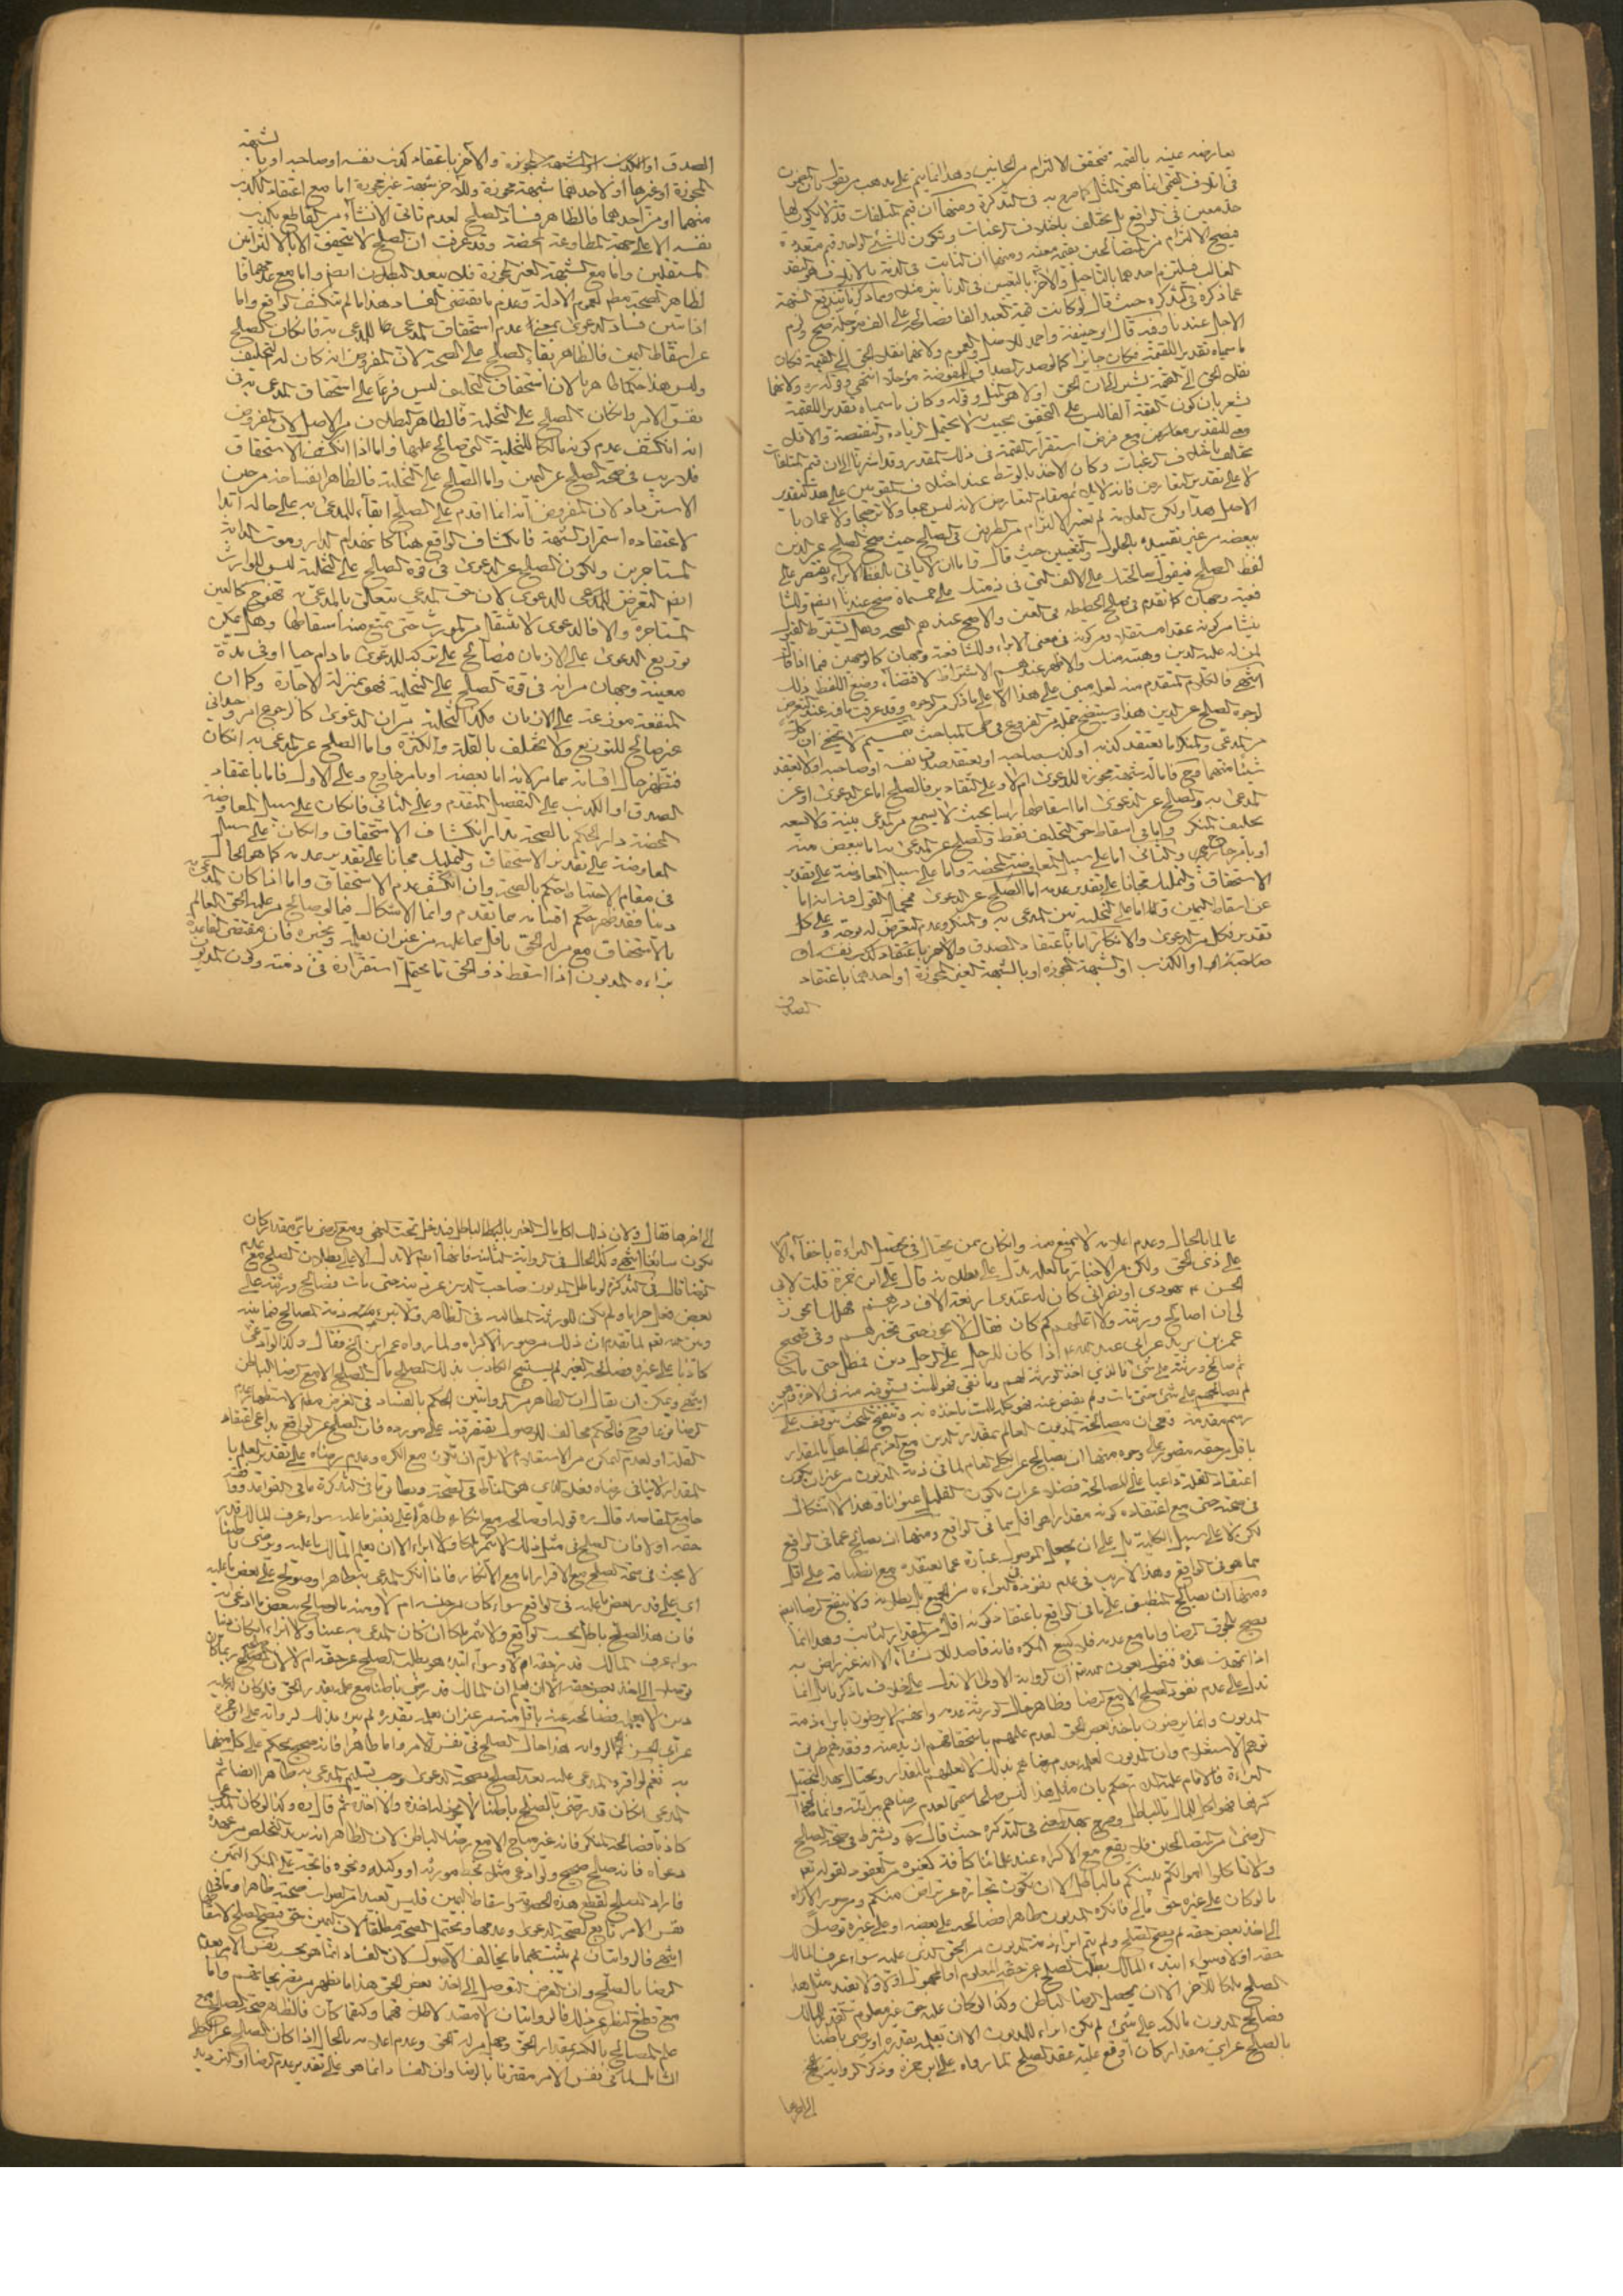 تعارضه عينه بالقيمة فيتحقق الالتزام من الجانبين وهذا انما يتم على مذهب من يقول بان
في اتلاف القيمي ايضا هو المثل كما صرح به في التذكرة ومنها ان قيم المتلفات قد لا يكون لها
حد معين في الواقع بل يختلف باختلاف الرغبات ويكون للشيء الواحد قيم متعددة
فيصح الالتزام من المتصالحين بقيمة معينة ومنها ان الثابت في الذمة بالاتلاف هو النقد
الغالب فيلتزم احدهما بالتاجيل والآخر
عما ذكره في التذكرة حيث قال لو كانت قيمة العبد الفا فصالحه على الف مؤجلة صح ولزم
الاجل عندنا وبه قال ابو حنيفة واحمد للاصل والعموم ولانهما نقلا الحق الى القيمة فكان
ما سمياه تقديرا للقيمة فكان جائزا كما لو قدر الصداق للمفوضة مؤجلا انتهى وقوله ره ولانهما
نقلا الحق الى القيمة يشير الى ان الحق اولا هو المثل وقوله وكان ما سمياه تقديرا للقيمة
يشعر بان كون القيمة الفا ليس على التحقيق بحيث لا يحتمل الزيادة والنقيصة والا فلا
معنى للتقدير مع فرض استقرار القيمة في ذلك المقدر وقد اشرنا الى ان قيم المتلفات
تختلف باختلاف الرغبات وكان الاخذ بالوسط عند اختلاف المقومين على هذا التقدير
الاصل هذا ولكن العلامة لم يعتبر الالتزام من الطرفين في الصلح حيث صحح الصلح عن الدين
ببعضه من غير تقييده بالحلول والتعيين حيث قال فاما ان لا ياتي بلفظ الابراء ويقتصر على
لفظ الصلح فيقول صالحتك على الالف التي في ذمتك على خمسمائة صح عندنا ايضا وللشافعية
فيه وجهان كما تقدم في صلح الحطيطة في العين والاصح عندهم الصحة وهل يشترط القبول
ينشأ من كونه عقدا مستقلا ومن كونه في معنى الابراء وللشافعية وجهان كالوجهين فيما اذا قال
لمن له عليه الدين وهبته منك والاظهر عندهم الاشتراط لاقتضاء وضع اللفظ ذلك
انتهى
الصلح عن الدين هذا
من المدعي والمنكر اما يعتقد كذبه او كذب صاحبه او يعتقد صدق نفسه او صاحبه او لا يعتقد
المدعى به والصلح عن الدعوى اما اسقاطها راسا بحيث لا يسمع من المدعي بينة ولا يسعه
تحليف المنكر واما في اسقاط حق التحليف فقط والصلح عن المدعى به اما ببعض منه
او بامر خارجي والثاني اما على سبيل المعاوضة المحضة واما على سبيل المعاوضة على تقدير
الاستحقاق والتمليك مجانا على تقدير عدمه اما الصلح عن الدعوى
عن اسقاط اليمين واما على التخلية بين المدعى به والمنكر وعدم التعرض له بوجه وعلى كل
تقدير فكل من الدعوى والانكار اما باعتقاد الصدق والآخر باعتقاد كذب نفسه او
صاحبه او الكذب او الشبهة المجوزة او بالشبهة الغير المجوزة او احدهما باعتقاد
الصدق
لشبهة
الصدق او الكذب او الشبهة المجوزة والآخر باعتقاد كذب نفسه او صاحبه او با
المجوزة او غيرها او لاحدهما شبهة مجوزة وللآخر شبهة غير مجوزة اما مع اعتقاد الكذب
منهما او من احدهما فالظاهر فساد الصلح لعدم تاتي الانشاء من القاطع بكذب
نفسه الا على جهة المطاوعة المحضة وقد عرفت ان الصلح لا يتحقق الا بالالتزامين
المستقلين واما مع الشبهة الغير المجوزة فلا يبعد البطلان ايضا واما مع غيرهما فا
لظاهر الصحة مطلقا لعموم الادلة وعدم ما يقتضي الفساد هذا ما لم ينكشف الواقع واما
اذا تبين فساد الدعوى بمعنى عدم استحقاق المدعي للمدعى به فان كان الصلح
عن اسقاط اليمين فالظاهر بقاء الصلح على الصحة لان المفروض انه كان له التحليف
وليس هذا حكما ظاهريا لان استحقاق التحليف ليس فرعا على استحقاق المدعى به في
نفس الامر وان كان الصلح على التخلية فالظاهر البطلان من الاصل لان المفروض
انه انكشف عدم كونه مالكا للتخلية التي صالح عليها واما اذا انكشف الاستحقاق
فلا ريب في صحة الصلح عن اليمين واما الصلح على التخلية فالظاهر انفساخه من حين
الاسترداد لان المفروض انه انما اقدم على الصلح ابقاء للمدعى به على حاله ابدا
لاعتقاده استمرار الشبهة فانكشاف الواقع هنا كانهدام الدار وموت الدابة
المستاجرين ولكون الصلح عن الدعوى في قوة الصلح على التخلية ليس للوارث
ايضا التعرض للمدعي للدعوى لان حق المدعي يتعلق بالمدعى به فهو كالعين
المستاجرة والا فالدعوى لا تنتقل من المورث حتى يمتنع منه اسقاطها وهل يمكن
توزيع الدعوى على الازمان فيصالح على تركه للدعوى ما دام حيا او في مدة
معينة وجهان من انه في قوة الصلح على التخلية فهو بمنزلة الاجارة وكما ان
المنفعة موزعة على الازمان فكذا التخلية من ان الدعوى كالرجوع امر وحداني
غير صالح للتوزيع ولا يختلف بالقلة والكثرة واما الصلح عن المدعى به ان كان
فيظهر حال اقسامه مما مر لانه اما ببعضه او بامر خارج وعلى الاول فاما باعتقاد
الصدق او الكذب على التفصيل المتقدم وعلى الثاني فان كان على سبيل المعاوضة
المحضة دار الحكم بالصحة مدار انكشاف الاستحقاق وان كان على سبيل
المعاوضة على تقدير الاستحقاق والتمليك مجانا على تقدير عدمه كما هو الحال
في مقام الاحتياط حكم بالصحة وان انكشف عدم الاستحقاق واما اذا كان المدعى به
دينا فقد ظهر حكم اقسامه مما تقدم وانما الاشكال فيما لو صالح من عليه الحق العالم
بالاستحقاق مع من له الحق باقل مما عليه من غير ان يعلمه ويخبره فان مقتضى القاعدة
براءة المديون اذا اسقط ذو الحق ما يحتمل استقراره في ذمته وكون المديون
عالما بالحال وعدم اعلامه لا يمنع منه وان كان ممن يحتال في تحصيل البراءة باخفاء الا
على ذي الحق ولكن من الاخبار ما لعله يدل على بطلانه قال علي ابن حمزة قلت لابي
الحسن ع يهودي او نصراني كان له عندي اربعة الاف درهم فهلك ايجوز
لي ان اصالح ورثته ولا اعلمهم كم كان فقال لا يجوز حتى تخبرهم وفي صحيح
عمر بن يزيد عن ابي عبد الله ع اذا كان للرجل على الرجل دين فمطله حتى مات
ثم صالح ورثته على شيء فالذي اخذ الورثة لهم وما بقي فهو للميت يستوفيه منه في الآخرة وان هو
لم يصالحهم على شيء حتى مات ولم يقض عنه فهو كله للميت ياخذه به وتنقيح البحث يتوقف على
رسم مقدمة وهي ان مصالحة المديون العالم بمقدار الدين مع الغريم الجاهل بالمقدار
باقل من حقه يتصور على وجوه منها ان يصالح عن الكلي العام لما في ذمة المديون من غير ان يكون
اعتقاد القلة داعيا على المصالحة فضلا عن ان يكون القليل عنوانا وهذا لا اشكال
في صحته حتى مع اعتقاده كونه مقدارا هو اقل مما في الواقع ومنها ان يصالح عما في الواقع
لكن لا على سبيل الكلية بل على ان يجعل الموصول عبارة عما يعتقده مع انطباقه على اقل
مما هو في الواقع وهذا لا ريب في عدم نفوذه في البراءة من الجميع بل بطلانه ولا ينفع الرضا ايضا
ومنها ان يصالح المنطبق على ما في الواقع باعتقاد كونه اقل من المقدار الثابت وهذا انما
يصح بلحوق الرضا واما مع عدمه فلا كبيع المكره فانه قاصد للانشاء الا انه غير راض به
اذا تمهدت هذه فنقول بعون الله تعالى ان الرواية الاولى لا تدل على خلاف ما ذكرنا بل انما
تدل على عدم نفوذ الصلح الا مع الرضا وظاهر حال الورثة عدمه وانهم لا يرضون بابراء ذمة
المديون وانما يرضون باخذ بعض الحق لعدم علمهم باستحقاقهم ازيد منه وفقد طريق
البراءة فالامام عليه السلام حكم بان مثل هذا ليس صلحا صحيحا لعدم رضاهم
الرضا من المتصالحين فلا يقع مع الاكراه عند علمائنا كافة كغيره من العقود لقوله تعالى
ولا تاكلوا اموالكم بينكم بالباطل الا ان تكون تجارة عن تراض منكم ومن صور الاكراه
ما لو كان على غيره حق مالي فانكره المديون ظاهرا فصالحه على بعضه او على غيره توصلا
الى اخذ بعض حقه لم يصح الصلح ولم يتم ابراء ذمة المديون من الحق الذي عليه سواء عرف المالك
حقه او لا وسواء ابتدء المالك بطلب الصلح عن حقه المعلوم او المجهول او لا ولا يفيد مثل هذا
الصلح ملكا للآخر الا ان يحصل الرضا الباطن وكذا لو كان عليه حق غير معلوم القدر للمالك
فصالح المديون مالكه على شيء لم يكن ابراء للمديون الا ان يعلمه بقدره او يرضى باطنا
بالصلح عن اي مقدار كان اوقع عليه عقد الصلح لما رواه علي ابن حمزة وذكر الرواية
الى اخرها
الى اخرها فقال ولان ذلك اكل مال الغير بالباطل فيدخل تحت النهي ومع الرضا باي مقدار كان
يكون سائغا انتهى وكذا الحال في الرواية الثانية فانها ايضا لا تدل الا على بطلان الصلح مع عدم
الرضا قال في التذكرة لو ماطل المديون صاحب الدين عن دينه حتى مات فصالح ورثته على
بعض فعل حراما ولم يكن للورثة المطالبة في الظاهر ولا تبرء ذمة المصالح فيما بينه
وبين الله تعالى لما تقدم ان ذلك من صور الاكراه ولما رواه عمر ابن يزيد فقال وكذا لو ادعى
كاذبا على غيره فصالحه الغير لم يستبح الكاذب بذلك الصلح مال الصلح الا مع الرضا الباطن
انتهى ويمكن ان يقال ان الظاهر من الروايتين الحكم بالفساد
المقدار لا ينافي رضاه بفعله الذي هو المناط في الصحة ويطابق ما في التذكرة ما في القواعد وفي
جامع المقاصد قال ره قوله او صالحه مع انكاره ظاهرا على بعض ما عليه سواء عرف المالك قدر
حقه او لا فان الصلح في مثل ذلك لا يثمر ملكا ولا ابراء الا ان يعلم المالك ما عليه ويرضى باطنا
لا بحث في صحة الصلح مع الاقرار اما مع الانكار فاذا انكر المدعى به ظاهرا وصولح على بعض ما عليه
اي على قدر بعض ما عليه في الواقع سواء كان من جنسه ام لا ومثله ما لو صالح ببعض ما ادعى به
فان هذا الصلح باطل بحسب الواقع ولا يثمر ملكا ان كان المدعى به عينا ولا ابراء ان كان دينا
سواء عرف المالك قدر حقه ام لا وسواء ابتدء هو بطلب الصلح عن حقه ام لا لان الصلح ربما كان
توصلا الى اخذ بعض حقه الا ان يعلم ان المالك قد رضي باطنا مع علمه بقدر الحق فلو كان له عليه
دين لا يعلمه فصالحه عنه باقل منه من غير ان يعلمه بقدره لم يبرء بذلك لرواية علي ابن حمزة
عن ابي الحسن ع الرواية هذا حال الصلح في نفس الامر واما ظاهرا فانه صحيح يحكم على كل منهما
به نعم لو اقر المدعى عليه بعد الصلح بصحة الدعوى وجب تسليم المدعى به ظاهرا ايضا ثم
المدعي ان كان قد رضي بالصلح باطنا لا يجوز له اخذه والا اخذه ثم قال ره وكذا لو كان المدعي
كاذبا فصالحه المنكر فانه غير مباح الا مع رضا الباطن لان الظاهر انه يريد التخلص من عهدة
دعواه فانه صلح صحيح ولو ادعى مثلا بخط مورثه او وكيله ونحوه فاتجه على المنكر اليمين
فاراد الصلح لقطع هذه الخصومة واسقاط اليمين فليس ببعيد من الصواب صحته ظاهرا وما في
نفس الامر تابع لصحة الدعوى وعدمها ويحتمل الصحة مطلقا لان اليمين حق فيصح الصلح لاسقاطها
انتهى فالروايتان لم يثبت بهما ما يخالف الاصول لان الفساد انما هو بحسب نفس الامر بعدم
الرضا بالصلح وان الغرض التوصل الى اخذ بعض الحق هذا ما يظهر من بعض مشايخنا واما
علم المصالح بالكسر بمقدار الحق وجهل من له الحق وعدم اعلامه بالحال اذا كان الصلح عن الحق
الثابت له في نفس الامر مقترنا بالرضا وان الفساد انما هو على تقدير عدم الرضا